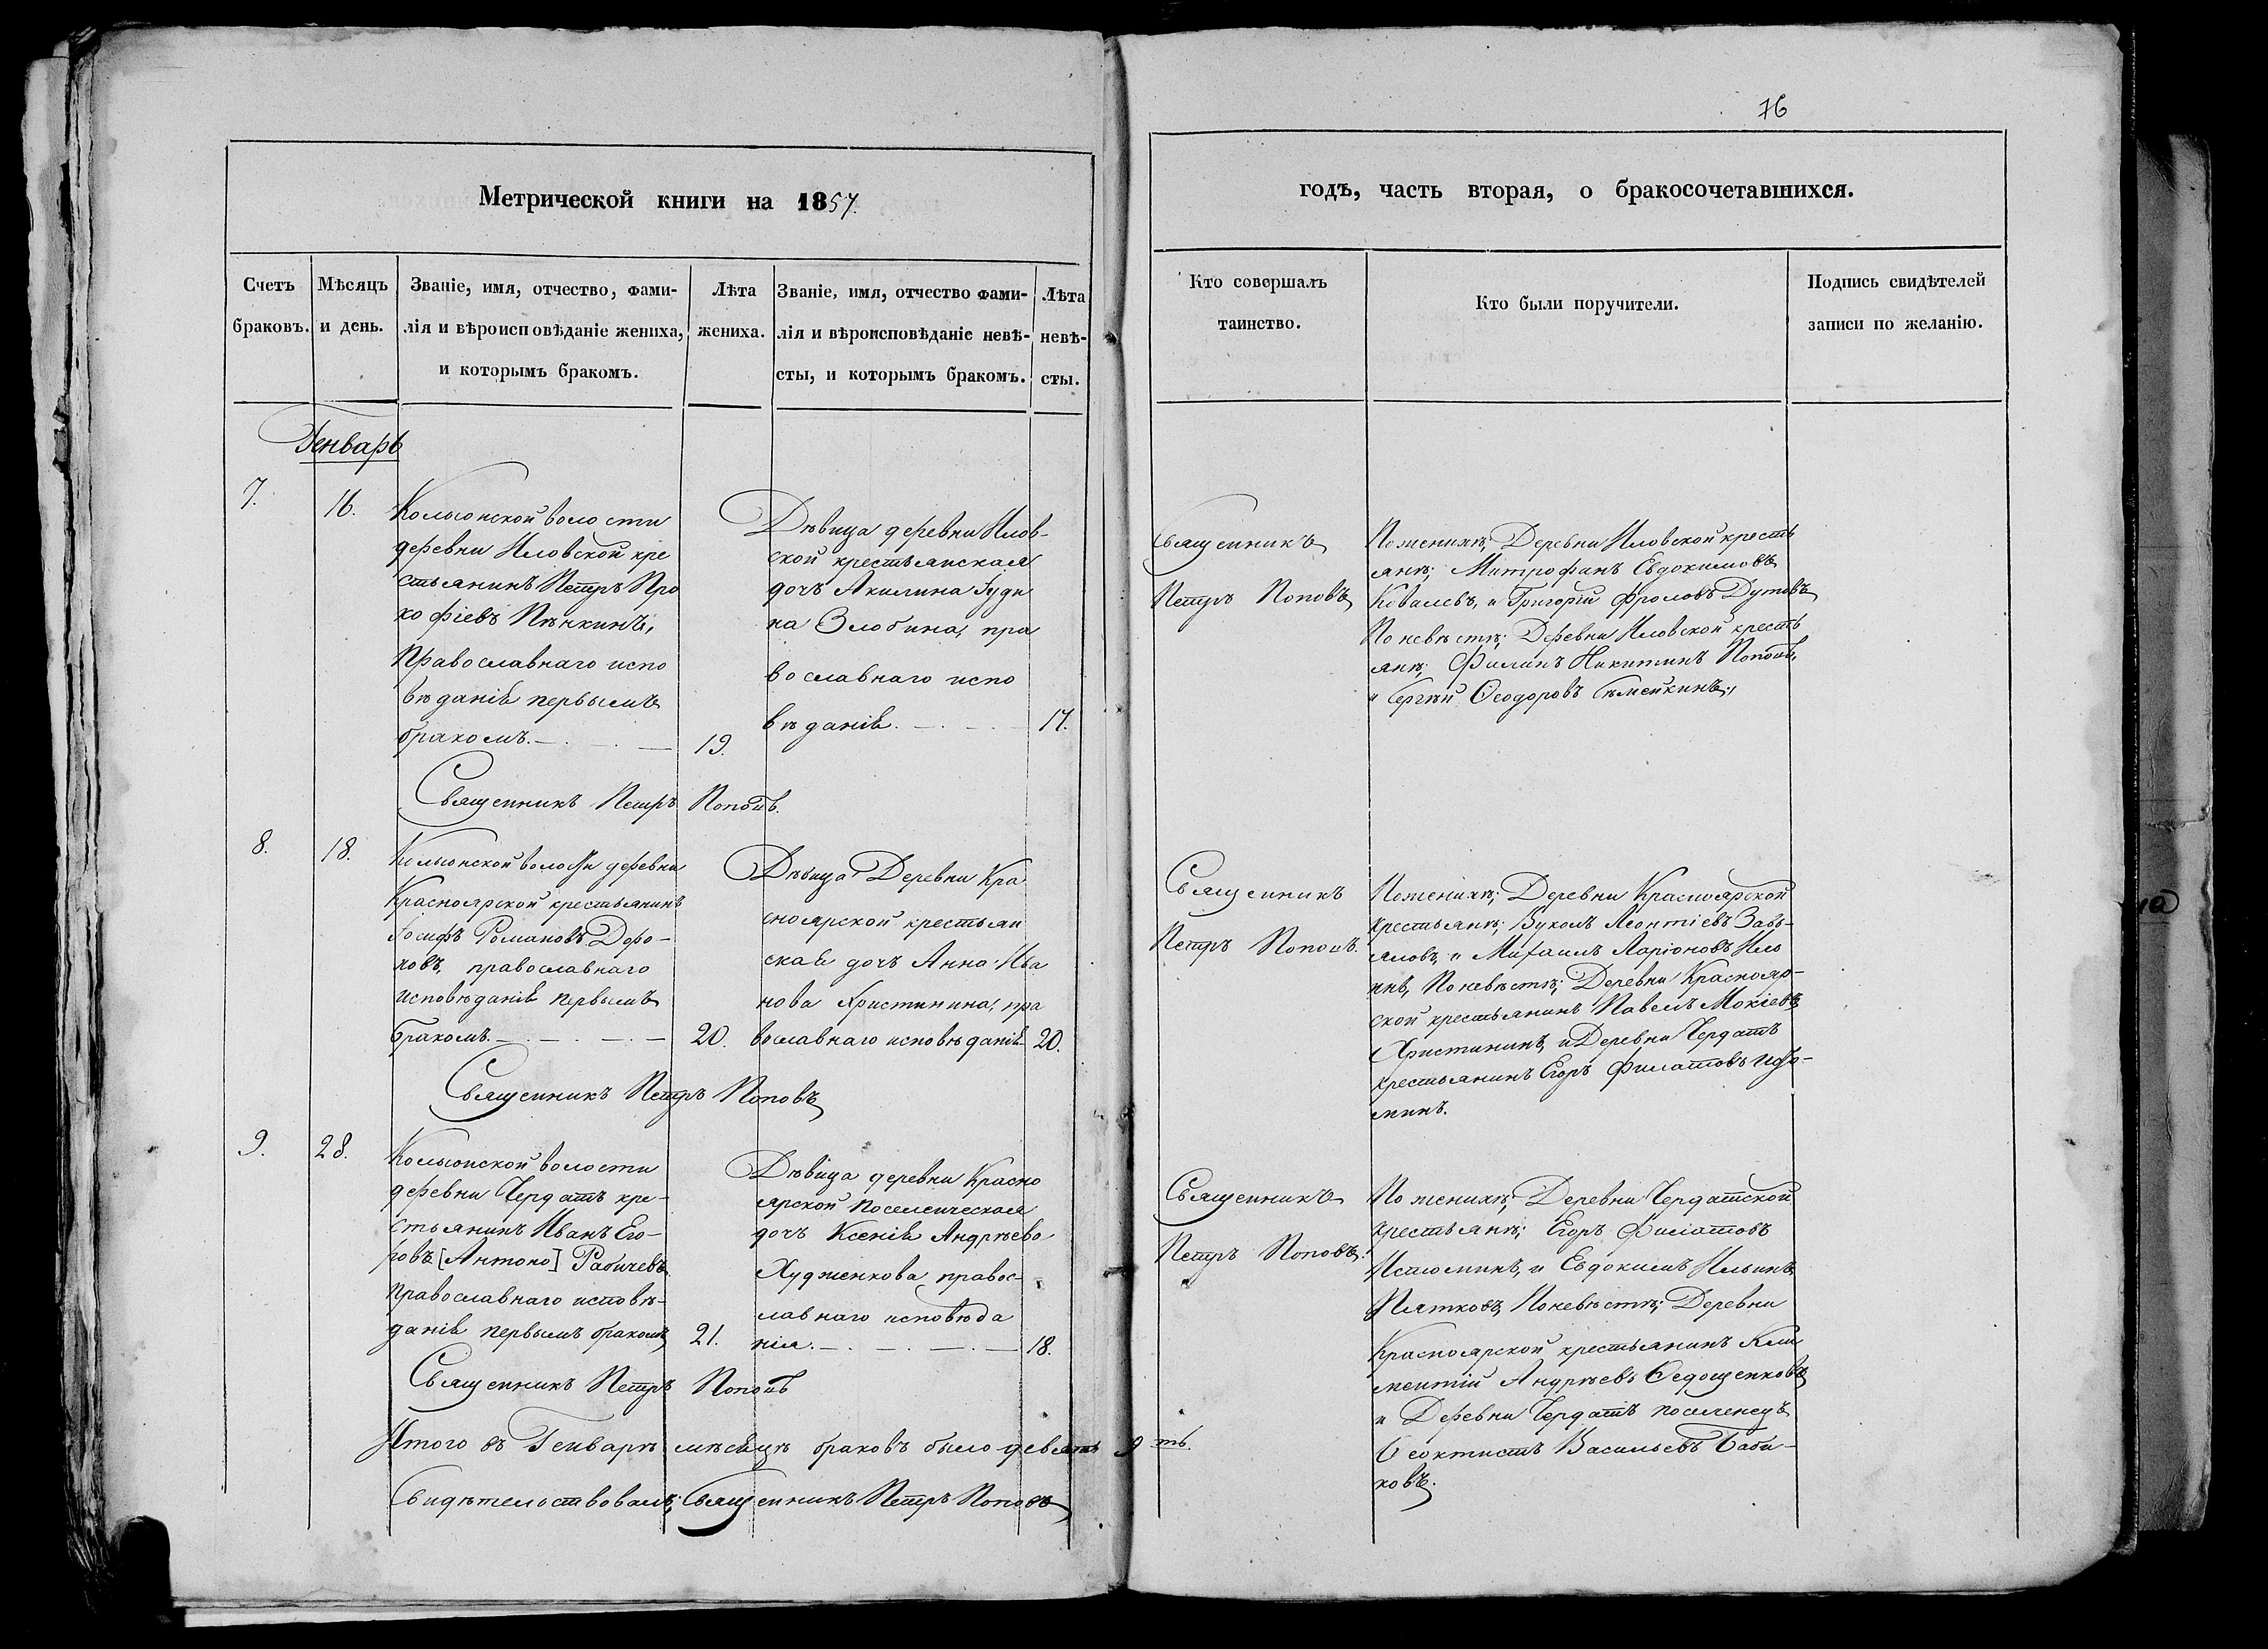 76
Метрической книги на 1857.
годъ, часть вторая, о бракосочетавшихся.
Счетъ браковъ.
Мѣсяцъ и день.
Званіе, имя, отчество, фами-
лія и вѣроисповѣданіе жениха,
и которымъ бракомъ.
Лѣта
жениха.
Званіе, имя, отчество фами-
лія и вѣроисповѣданіе невѣ-
сты, и которымъ бракомъ.
Лѣта
невѣ-
сты.
Кто совершалъ
таинство.
Кто были поручители.
Подпись свидѣтелей
записи по желанію.
Генварь
7.
16.
Колыонской волости
деревни Иловской кре
стьянинъ Петръ Про
кофіевъ Пѣнкинъ,
православнаго испо
вѣданія первымъ
бракомъ.
19.
Дѣвица деревни Илов-
ской крестьянская
дочь Акилина Іуди
на Злобина, пра
вославнаго испо
вѣданія.
17.
Священникъ Петръ Поповъ.
Священникъ
Петръ Поповъ
По женихѣ; Деревни Иловской кресть
янѣ; Митрофанъ Евдокимовъ
Ковалевъ, и Григорій Фроловъ Дутовъ
По невѣстѣ; Деревни Иловской кресть
янѣ; Филипъ Никитинъ Поповъ,
и Сергѣй Ѳеодоровъ
8.
18.
Колыонской волости деревни
Красноярской крестьянинъ
Іосифъ Романовъ Доро-
ховъ, православнаго
исповѣданія первымъ
бракомъ.
20.
Дѣвица Деревни Кра
сноярской крестьян
ская дочь Анна Ива
нова Христинина, пра
вославнаго исповѣданія
20.
Священникъ Петръ Поповъ
Священникъ
Петръ Поповъ.
По женихѣ; Деревни Красноярской
крестьянѣ; Вуколъ Леонтіевъ Завь-
яловъ, и Михаилъ Ларіоновъ Иль
инъ, По невѣстѣ; Деревни Краснояр-
ской крестьянинъ Павелъ Мокіевъ
Христининъ, и Деревни Чердатъ
крестьянинъ Егоръ Филатовъ
минъ.
9.
28.
Колыонской волости
деревни Чердатъ кре-
стьянинъ Иванъ Его-
ровъ [Антоно] Рабичевъ
православнаго исповѣ-
данія первымъ бракомъ,
21.
Дѣвица деревни Красно
ярской поселенческая
дочь Ксенія Андрѣева
Худженкова правос-
лавнаго исповѣда
нія.
18.
Священникъ Петръ Поповъ
Священникъ
Петръ Поповъ.
По женихѣ; Деревни Чердатской
крестьянѣ; Егоръ Филатовъ
Истоминъ, и Евдокимъ Ильинъ
Пятковъ, По невѣстѣ; Деревни
Красноярской крестьянинъ Кли
ментій Андрѣевъ Ѳедощенковъ
и Деревни Чердатъ поселенецъ
Ѳеоктистъ Васильевъ Баби-
ковъ.
Итого въ Генварѣ мѣсяцѣ браковъ было девять 9 ть.
Свидѣтельствовалъ; Священникъ Петръ Поповъ